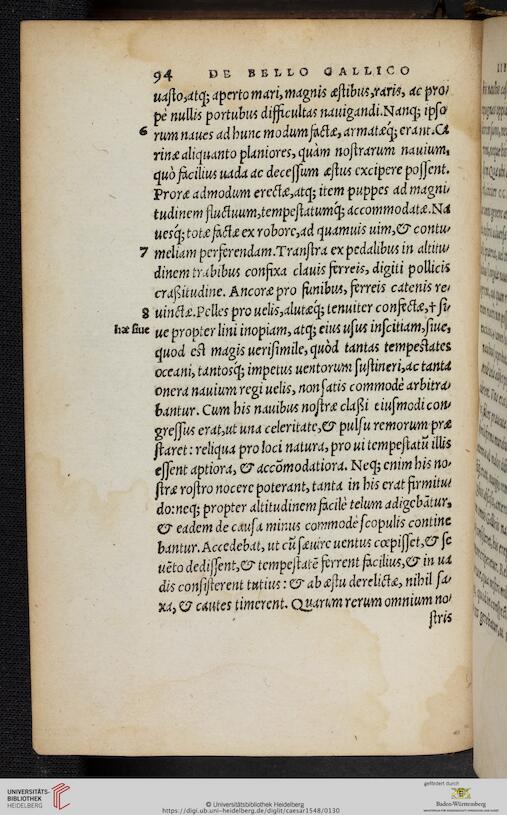 94 DE BELLO GALLICO
uasto,atq; aperto mari, magnis æstibus,raris, ac pro/
pè nullis portubus difficultas nauigandi. Nanq; ipso
6 rum naues ad hunc modum factæ, armatæq; erant. Ca
rinæ aliquanto planiores, quàm nostrarum nauium,
quò facilius uada ac decessum æstus excipere possent.
Proræ admodum erectæ,atq; item puppes ad magni/
tudinem fluctuum,tempestatumq; accommodatæ. Na
uesq; totæ factæ ex robore, ad quamuis uim,& contu/
7 meliam perferendam. Transtra ex pedalibus in altitu/
dinem trabibus confixa clauis ferreis, digiti pollicis
crassitudine. Ancoræ pro funibus, ferreis catenis re/
8 uinctæ. Pelles pro uelis,alutæq; tenuiter confectæ,† si/
hæ siue ue propter lini inopiam, atq; eius usus inscitiam, siue,
quod est magis uerisimile, quòd tantas tempestates
oceani, tantosq; impetus uentorum sustineri, ac tanta
onera nauium regi uelis, non satis commodè arbitra/
bantur. Cum his nauibus nostræ classi eiusmodi con/
gressus erat,ut una celeritate,& pulsu remorum præ
staret: reliqua pro loci natura, pro ui tempestatū illis
essent aptiora, & accōmodatiora. Neq; enim his no/
stræ rostro nocere poterant, tanta in his erat firmitu/
do: neq; propter altitudinem facilè telum adigebātur,
& eadem de causa minus commodè scopulis contine
bantur. Accedebat, ut cū sæuire uentus cœpisset,& se
uēto dedissent,& tempestatē ferrent facilius,& in ua
dis consisterent tutius: & ab æstu derelictæ, nihil sa/
xa, & cautes timerent. Quarum rerum omnium no/
stris
UNIVERSITÄTS-
BIBLIOTHEK
HEIDELBERG
© Universitätsbibliothek Heidelberg
https://digi.ub.uni-heidelberg.de/diglit/caesar1548/0130
gefördert durch
Baden-Württemberg